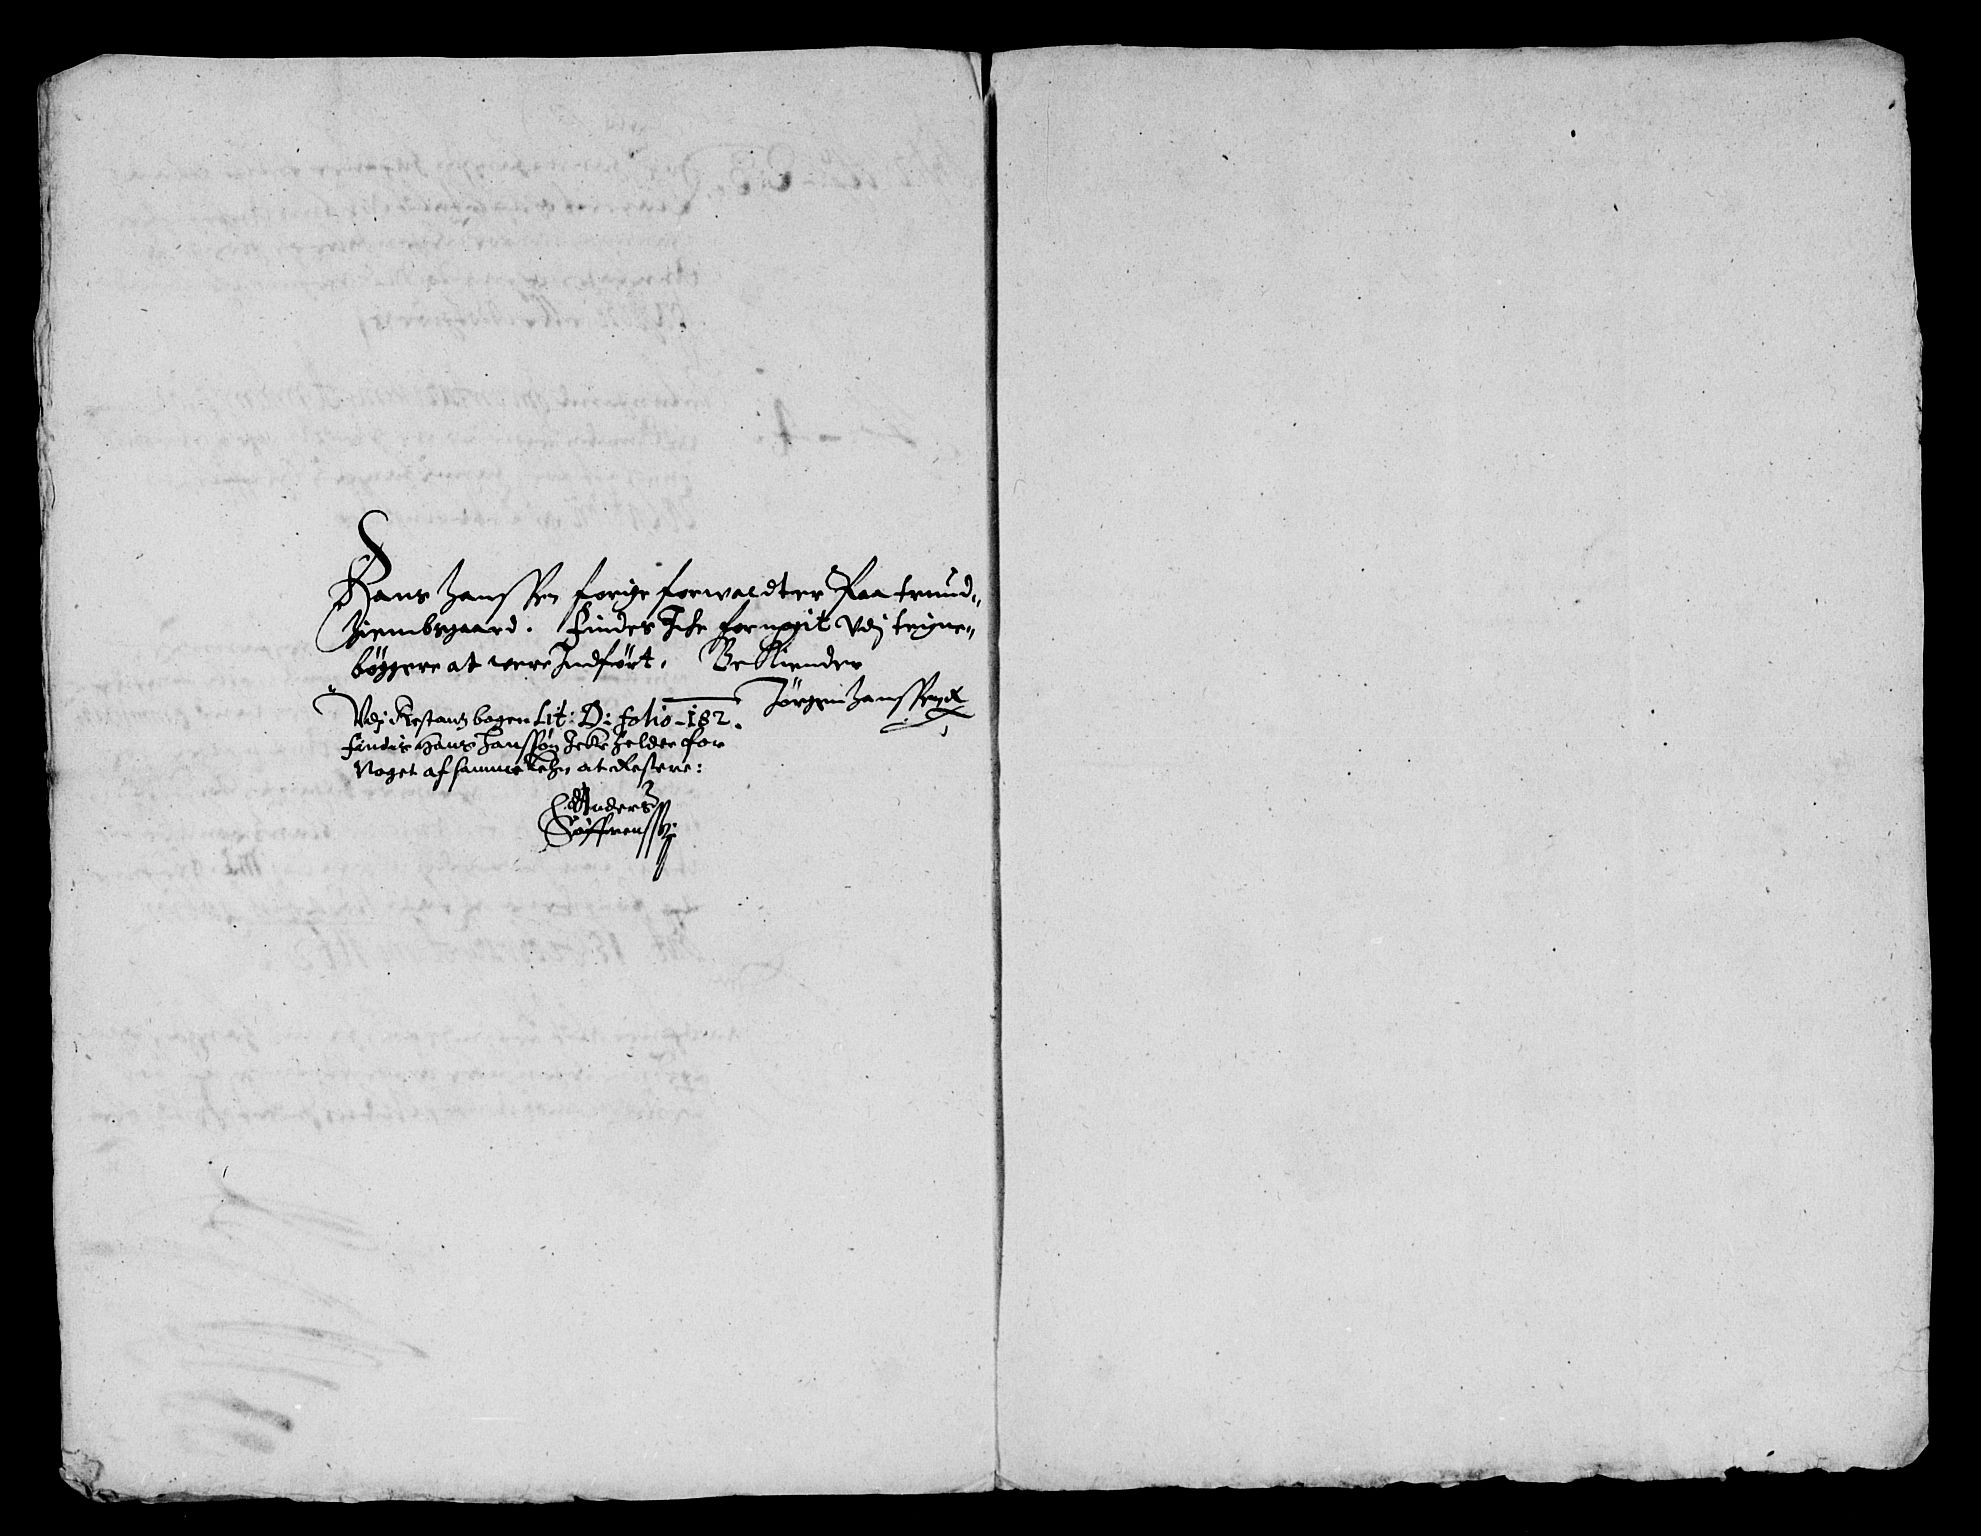 Hans Hanssen forige forwaldter Paa trund-
hiembsgaard. findes Icke for nogit Vdj teigne-
bøggere at were Indført. Bekiender
Jørgen Hanssen
Vdj Restantz bogen Lit: D: folio-182.
findis Hans Hanssøn Icke heller for
Noget af samme Lehn at Restere:
Anders
Søffrenss: